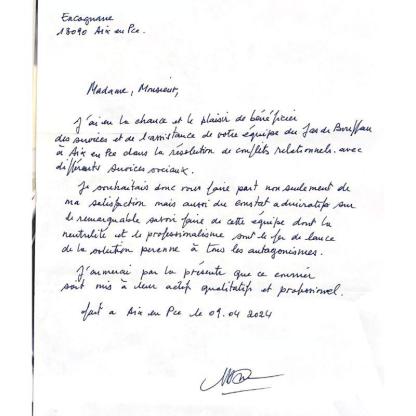 Encagnane
13090 Aix en Pce.
Madame, Monsieur,
J'ai eu la chance et le plaisir de bénéficier
des services et de l'assistance de votre équipe du Jas de Bouffan
à Aix en Pce dans la résolution de conflits relationnels avec
différents services sociaux.
Je souhaitais donc vous faire part non seulement de
ma satisfaction mais aussi du constat admiratif sur
le remarquable savoir faire de cette équipe dont la
neutralité et le professionalisme sont le fer de lance
de la solution perenne à tous les antagonismes.
J'aimerai par la présente que ce courrier
soit mis à leur actif qualitatif et professionnel.
fait à Aix en Pce le 09.04 2024